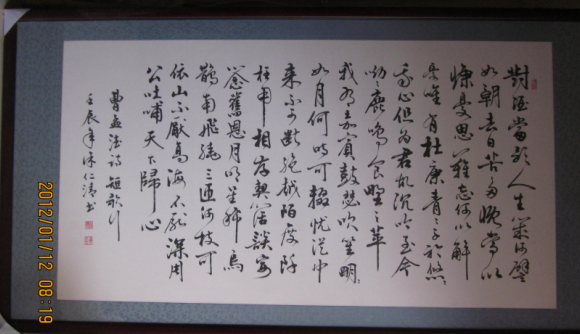 對酒當歌人生幾何譬
如朝去日苦多慨當以
慷憂思難忘何以解
憂唯有杜康青青子衿悠
我心但為君故沉吟至今
呦呦鹿鳴食野之苹
我有嘉賓鼓瑟吹笙明明
如月何時可掇憂從中
來不可斷絕越陌度阡
枉用相存契闊談宴
念舊恩月明星稀烏
鵲南飛繞三匝何枝可
依山不厭高海不厭深周
公吐哺天下歸心
曹孟德詩短歌行
壬辰年仁書
2012/01/12 08:19